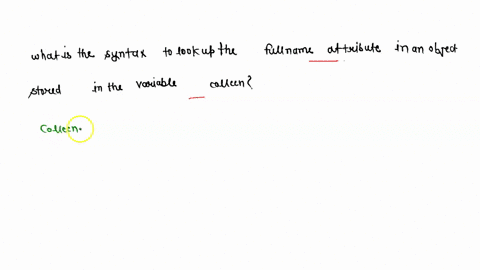 what is the syntax to look up the fullname attribute in an object
stored in the variable colleen?
Colleen.